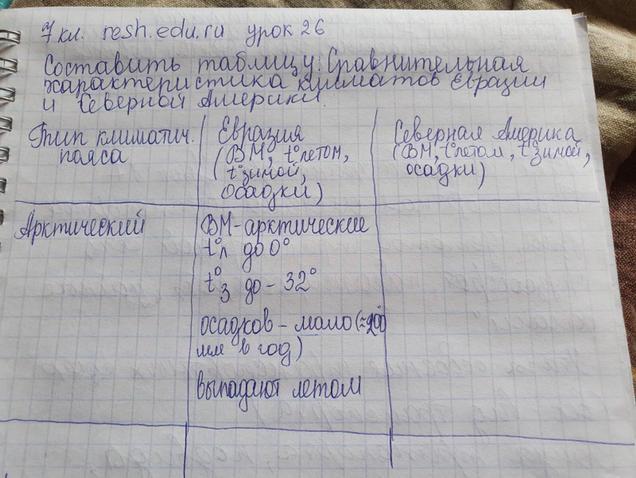 7 кл. resh.edu.ru урок 26
Составить таблицу: Сравнительная
характеристика климатов Евразии
и Северной Америки.
Тип климатич.
пояса
Евразия
(ВМ, t° летом,
t° зимой,
осадки)
Северная Америка
(ВМ, t° летом, t° зимой,
осадки)
Арктический
ВМ-арктические
t°л до 0°
t°з до - 32°
осадков - мало (≈200
мм в год)
выпадают летом